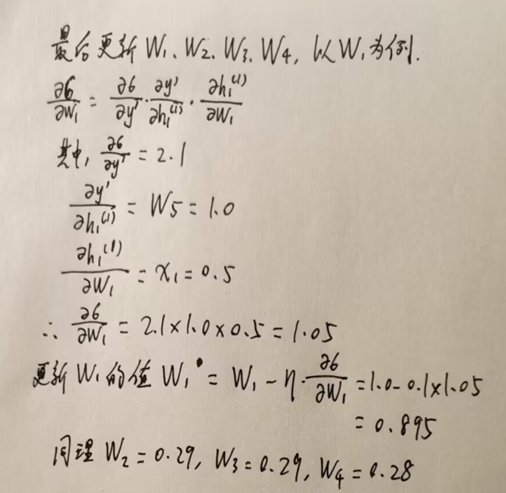 最后更新 W₁、W₂、W₃、W₄, 以W₁为例.
∂б/∂W₁ = ∂б/∂y' · ∂y'/∂h₁⁽¹⁾ · ∂h₁⁽¹⁾/∂W₁
其中, ∂б/∂y' = 2.1
∂y'/∂h₁⁽¹⁾ = W5 = 1.0
∂h₁⁽¹⁾/∂W₁ = x₁ = 0.5
∴ ∂б/∂W₁ = 2.1×1.0×0.5 = 1.05
更新W₁的值 W₁' = W₁ - η·∂б/∂W₁ = 1.0-0.1×1.05
= 0.895
同理 W₂ = 0.29, W₃ = 0.29, W₄ = 0.28